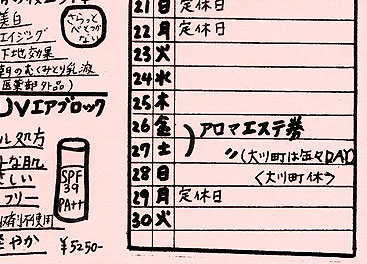 美白
エイジング
下地効果
朝のむくみとり乳液
(医薬部外品)
さらっと
べとつか
ない
UVエアブロック
ル処方
な肌
さしい
フリー
収剤不使用
やか
SPF
39
PA++
¥5250-
21 日 定休日
22 月 定休日
23 火
24 水
25 木
26 金
27 土
アロマエステ券
〃(大川町は毎々DAY)
28 日 く大川町休>
29 月 定休日
30 火